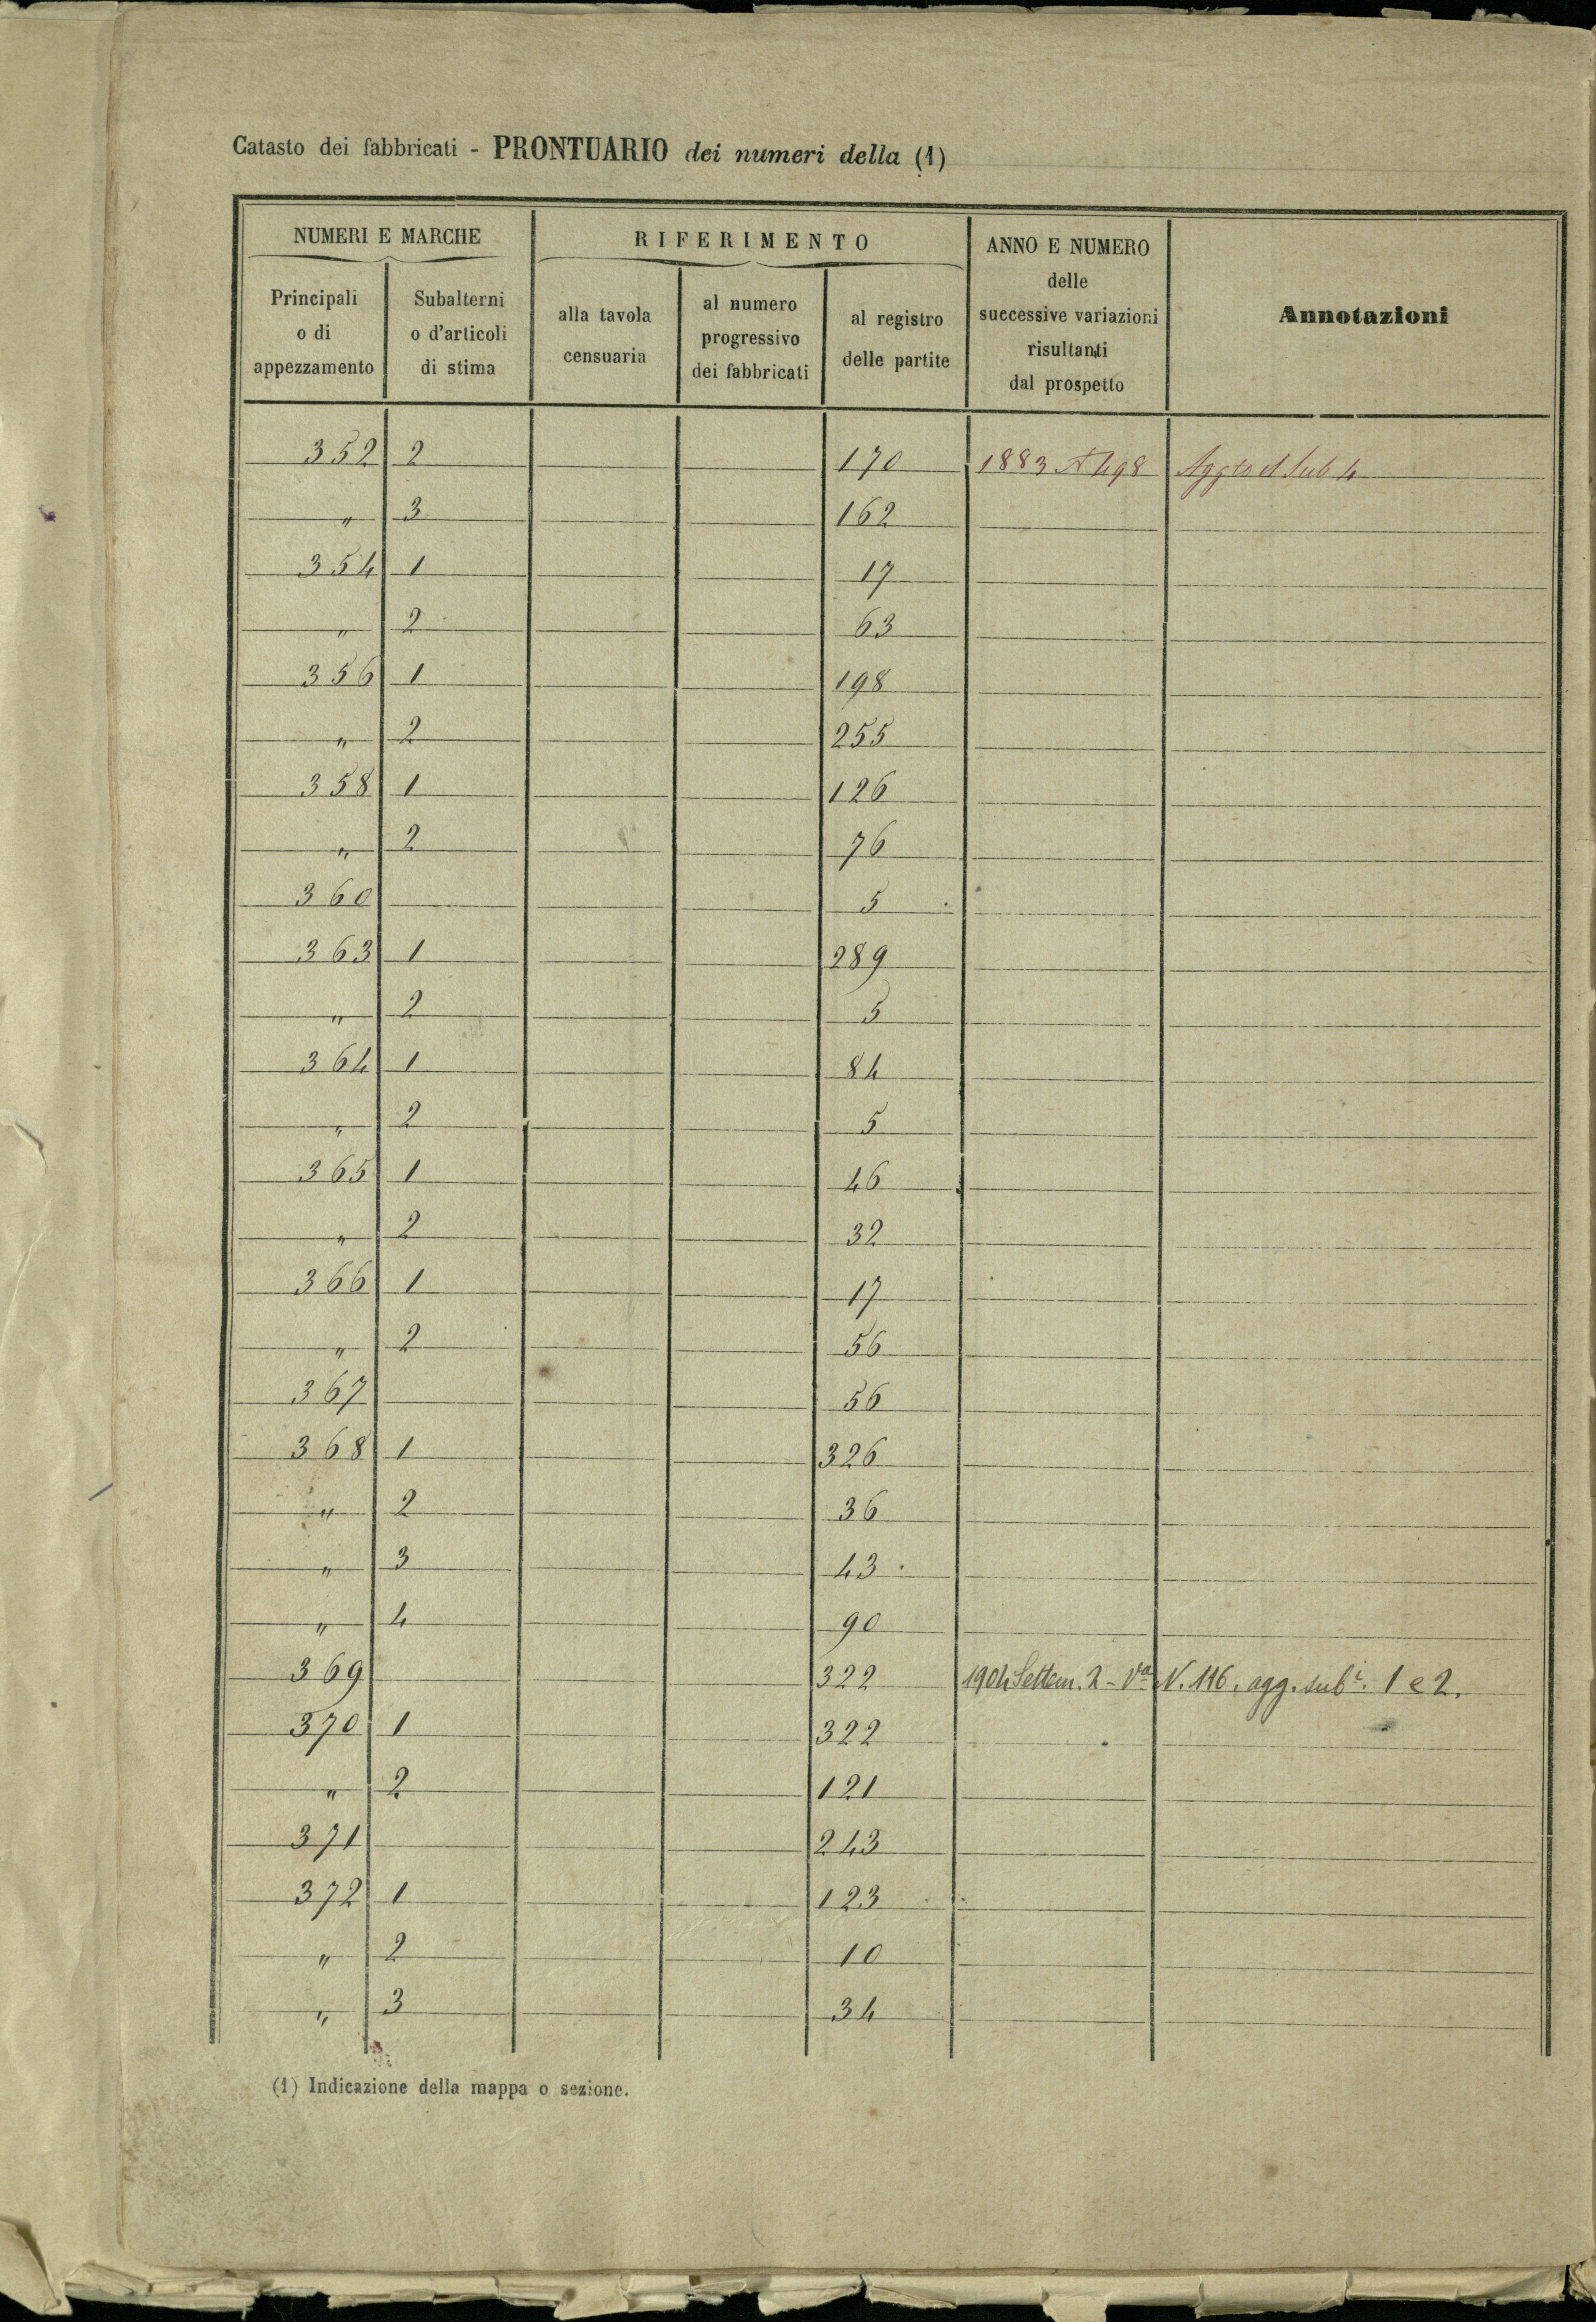 Catasto dei fabbricati - PRONTUARIO dei numeri della (1)
NUMERI E MARCHE
RIFERIMENTO
ANNO E NUMERO
delle
successive variazioni
risultanti
dal prospetto
Annotazioni
Principali
o di
appezzamento
Subalterni
o d'articoli
di stima
alla tavola
censuaria
al numero
progressivo
dei fabbricati
al registro
delle partite
352 2 170 1883 498 Sub 4
" 3 162
354 1 17
" 2 63
356 1 198
" 2 255
358 1 126
" 2 76
360 5
363 1 289
" 2 5
364 1 84
" 2 5
365 1 46
" 2 32
366 1 17
" 2 56
367 56
368 1 326
" 2 36
" 3 43
" 4 90
369 322 1904 Settem. 2 - Vª N. 116. agg. subⁱ. 1 e 2.
370 1 322
" 2 121
371 243
372 1 123
" 2 10
" 3 34
(1) Indicazione della mappa o sezione.